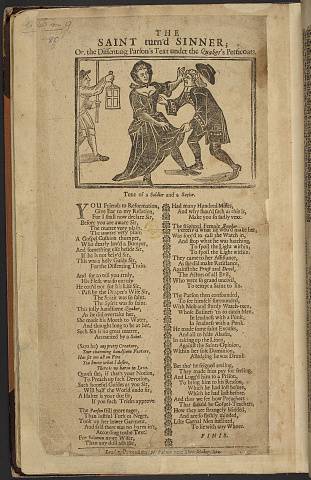 THE
SAINT turn'd SINNER;
Or, the Dissenting Parson's Text under the Quaker's Petticoats.
Tune of a Soldier and a Saylor.
YOU Friends to Reformation,
Give Ear to my Relation,
For I shall now declare, Sir,
Before you are aware Sir,
The matter very plain,
The matter very plain.
A Gospel Cushion thumper,
Who dearly lov'd a Bumper,
And something else beside Sir,
If he is not bely'd Sir,
This was a holy Guide, Sir,
For the Dissenting Train.
And for to tell you truly,
His Flesh was so unruly,
He could not for his Life Sir,
Pass by the Draper's Wife Sir,
The Spirit was so faint,
The Spirit was so faint.
This jolly handsome Quaker,
As he did overtake her,
She made his Mouth to Water,
And thought long to be at her,
Such Sin is no great matter,
Accounted by a Saint.
(Says he) my pretty Creature,
Your charming handsome Feature,
Has set me all on Fire,
You know what I desire,
There's no harm in Love.
Quoth she, if that's your Notion,
To Preach up such Devotion,
Such hopeful Guides as you Sir,
Will half the World undo Sir,
A Halter is your due Sir,
If you such Tricks approve.
The Parson still more eager,
Than lustful Turk or Neger,
Took up her lower Garment,
And said there was no harm in't,
According to the Text:
For Solomon more Wiser,
Than any dull adviser,
Had many Hundred Misses,
And why should such as this is,
Make you so sadly vext.
The frighted Female Quaker
To call the Watch in,
And stop what he was hatching,
To spoil the Light within,
To spoil the Light within.
They came to her Assistance,
As she did make Resistance,
Against the Priest and Devil,
The Actors of all Evil,
Who were so grand uncivil,
To tempt a Saint to Sin.
The Parson then confounded,
To see himself surrounded,
With Mob and sturdy Watch-men,
Whose Business 'tis to catch Men,
In Lewdness with a Punk,
In Lewdness with a Punk.
He made some faint Excuses,
And all to hide Abuses,
In taking up the Linen,
Against the Saints Opinion,
Within her soft Dominion,
Alledging he was Drunk
But tho' he feigned reeling,
They made him pay for feeling,
And Lugg'd him to a Prison,
To bring him to his Reason,
Which he had lost before,
Which he had lost before.
And thus we see how Preachers
That should be Gospel-Teachers,
How they are strangely blinded,
And are so fleshly minded,
Like Carnal Men inclined,
To lie with any Whore.
FINIS.